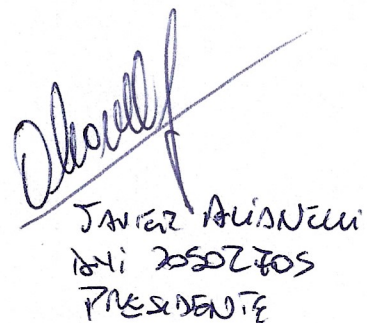 JAVIER ALIANELLI
DNI 20502705
PRESIDENTE